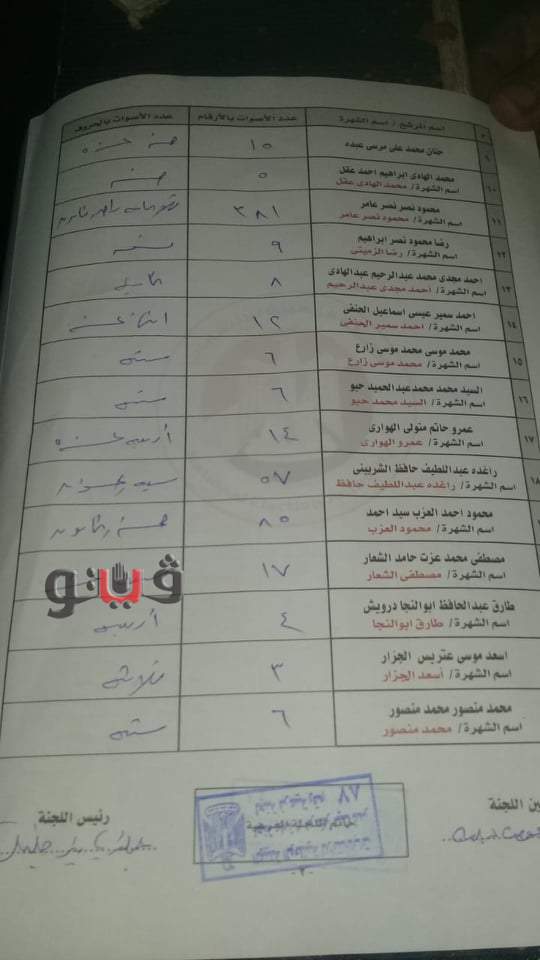 م
اسم المرشح / اسم الشهرة
عدد الأصوات بالأرقام
عدد الأصوات بالحروف
٩
حنان محمد على مرسى عبده
١٥
خمسة عشرة
١٠
محمد الهادى ابراهيم احمد عقل
اسم الشهرة/ محمد الهادى عقل
٥
خمسة
١١
محمود نصر نصر عامر
اسم الشهرة/ محمود نصر عامر
٣٨١
١٢
رضا محمود نصر ابراهيم
اسم الشهرة/ رضا الزمينى
٩
١٣
احمد مجدى محمد عبدالرحيم عبدالهادى
اسم الشهرة/ احمد مجدى عبدالرحيم
٨
١٤
احمد سمير عيسى اسماعيل الحنفى
اسم الشهرة/ احمد سمير الحنفى
١٢
١٥
محمد موسى محمد موسى زارع
اسم الشهرة/ محمد موسى زارع
٦
ستة
١٦
السيد محمد محمدعبدالحميد حبو
اسم الشهرة/ السيد محمد حبو
٦
ستة
١٧
عمرو حاتم متولى الهوارى
اسم الشهرة/ عمرو الهوارى
١٤
أربعة عشرة
١٨
راغده عبداللطيف حافظ الشربينى
اسم الشهرة/ راغده عبداللطيف حافظ
٥٧
سبعة وخمسون
محمود احمد العزب سيد احمد
اسم الشهرة/ محمود العزب
٨٥
خمسة وثمانون
مصطفى محمد عزت حامد الشعار
اسم الشهرة/ مصطفى الشعار
١٧
ڤيتو
طارق عبدالحافظ ابوالنجا درويش
اسم الشهرة/ طارق ابوالنجا
٤
أربعة
اسعد موسى عتريس الجزار
اسم الشهرة/ أسعد الجزار
٣
ثلاثة
محمد منصور محمد منصور
اسم الشهرة/ محمد منصور
٦
ستة
ين اللجنة
رئيس اللجنة
٨٧
-٢-